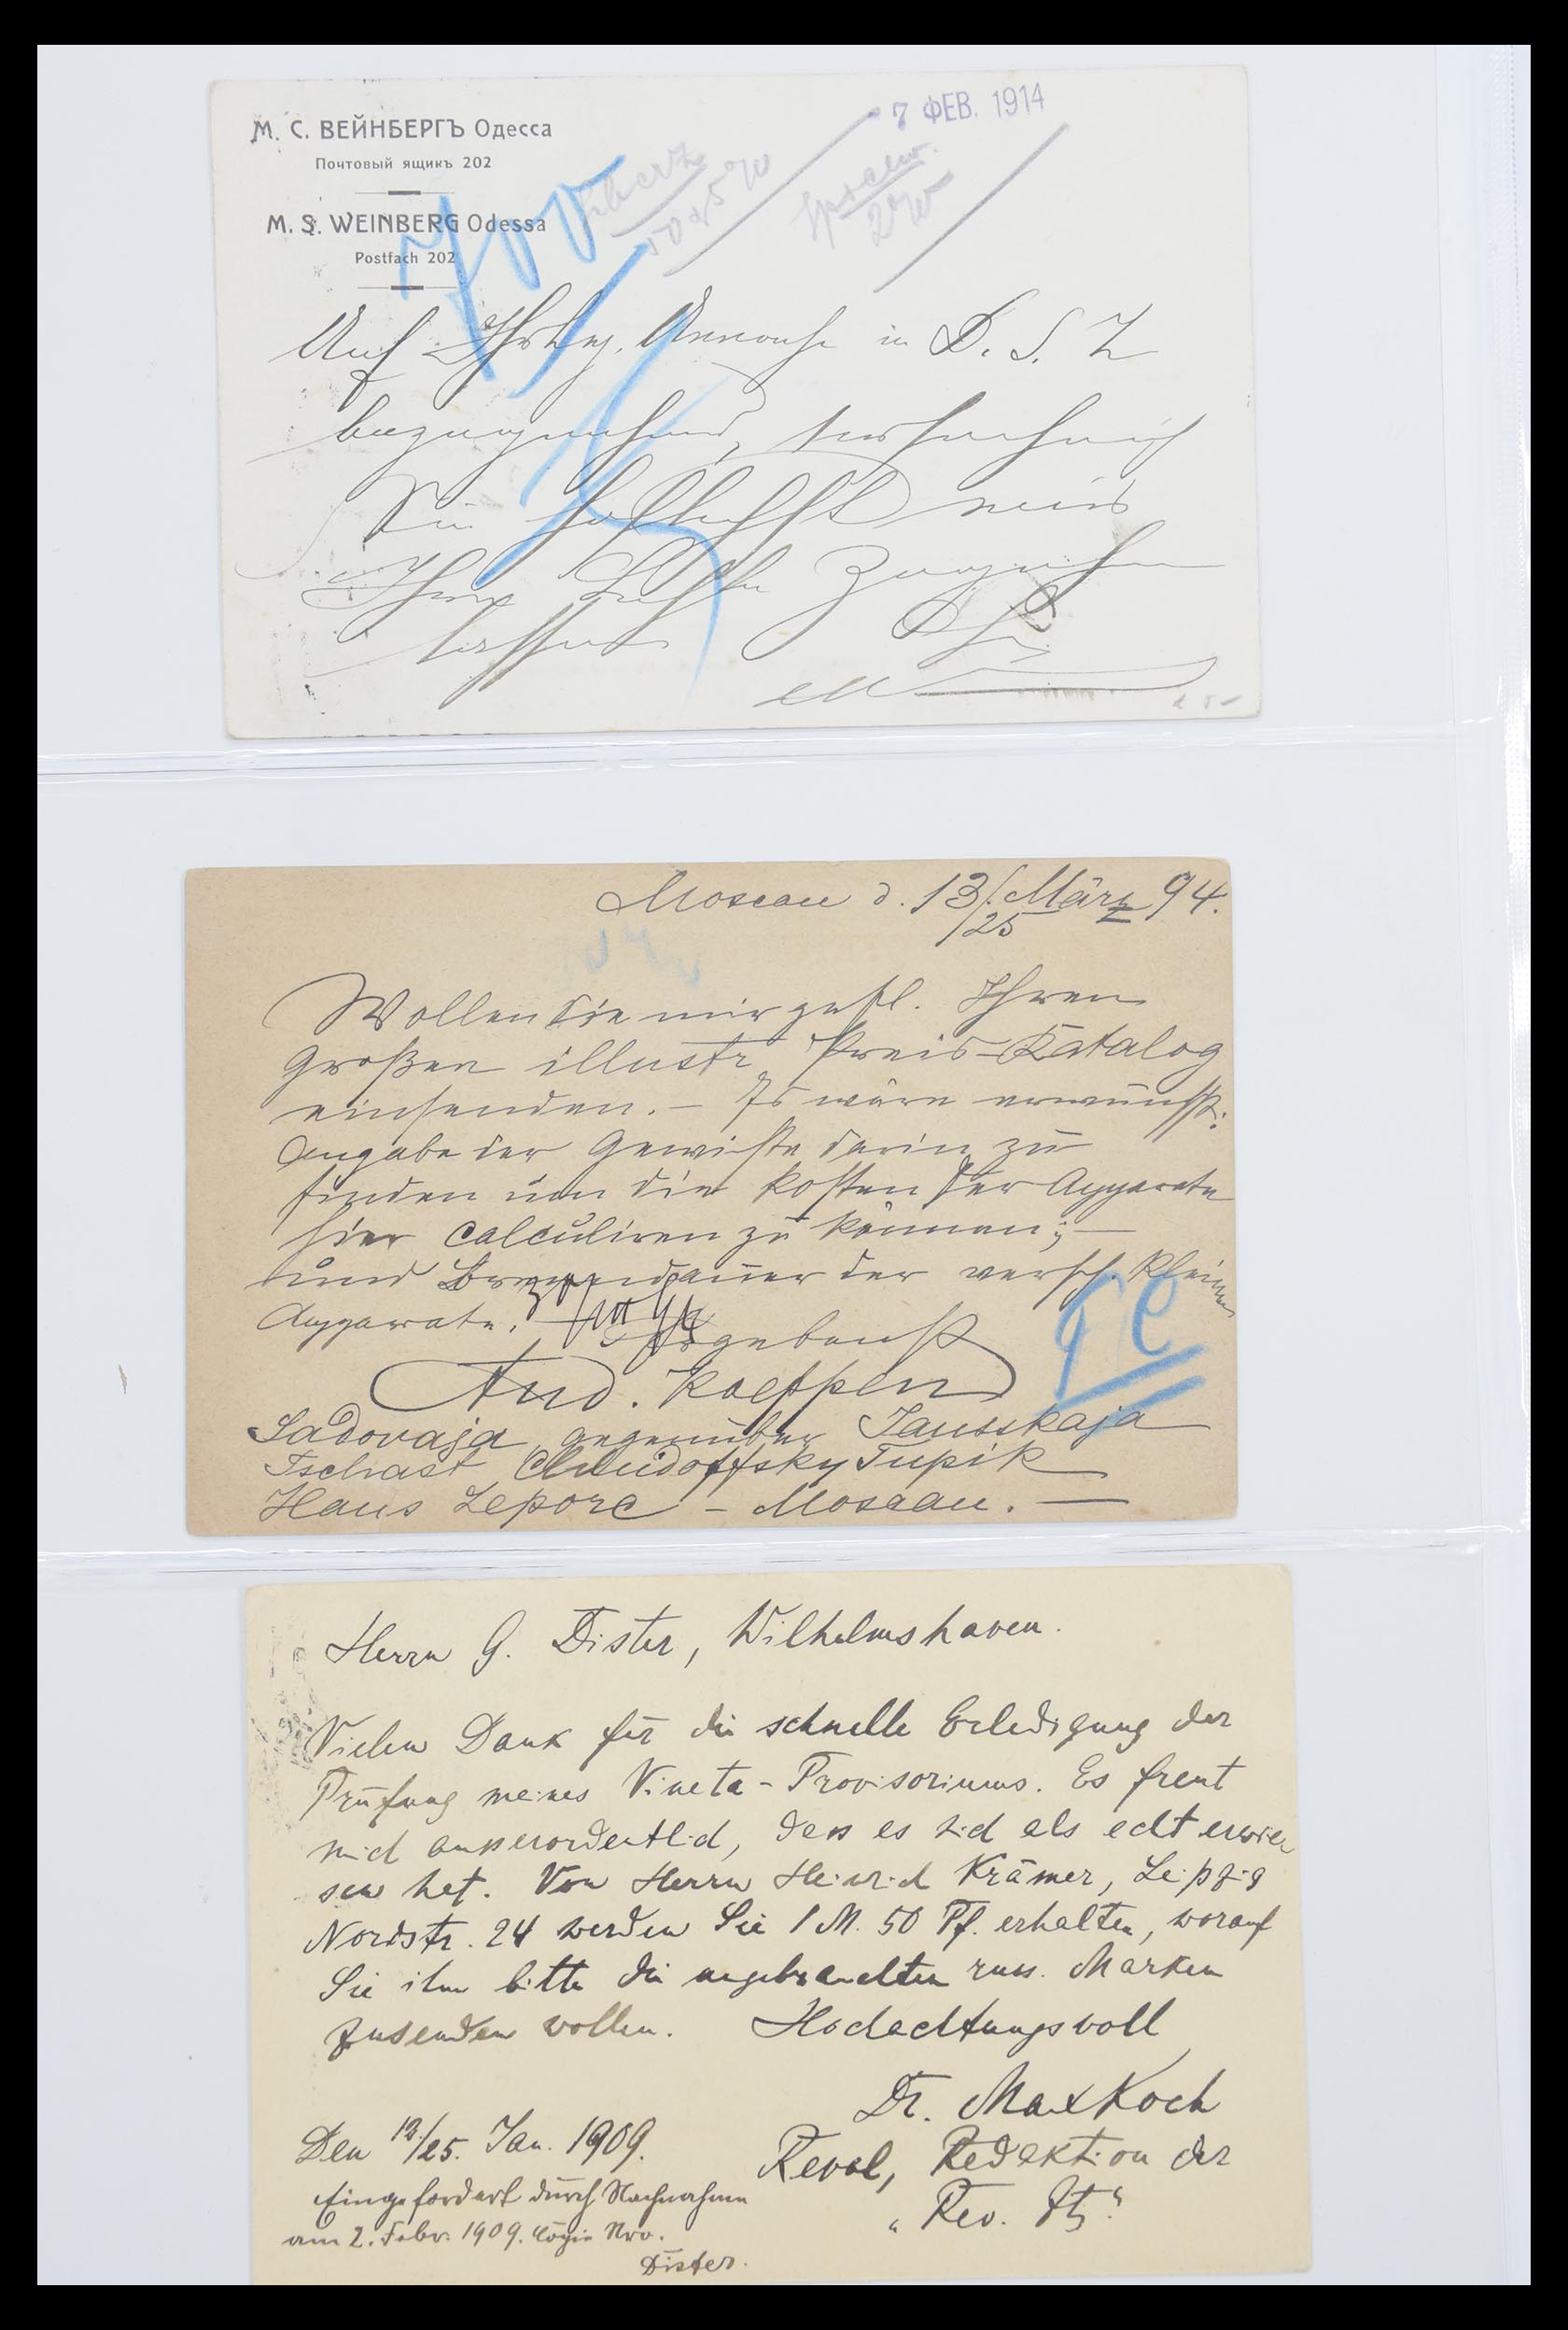 М. С. ВЕЙНБЕРГЪ Одесса
Почтовый ящикъ 202
M. S. WEINBERG Odessa
Postfach 202
7 ФЕВ. 1914
Auf Ihre Annonce in D. S. Z
bezugnehmend, ersuche ich
Sie höflichst mir
Ihre Liste zugehen
lassen
Moscau d. 13/25 März 94.
Wollen Sie mir gefl. Ihren
großen illustr. Preis-Katalog
einsenden. — Es wäre erwünscht:
Angabe der Gewichte darin zu
finden um die Kosten der Apparate
hier calculiren zu können; —
und Brenndauer der versch. kleinen
Apparate.
Ergebenst
And. Koeppen
Sadovaja gegenüber Jausskaja
Tschast Tupik
Haus Lepore — Moscau. —
Herrn G. Dister, Wilhelmshaven.
Vielen Dank für die schnelle Erledigung der
Prüfung meines Vineta-Provisoriums. Es freut
mich ausserordentlich, dass es sich als echt erwie-
sen hat. Von Herrn Heinrich Krämer, Leipzig
Nordstr. 24 werden Sie 1 M. 50 Pf. erhalten, worauf
Sie ihm bitte die ungebrauchten russ. Marken
zusenden wollen. Hochachtungsvoll
Dr. Max Koch
Den 12./25. Jan. 1909.
Reval, Redaktion der
„Rev. Ztg“
Eingefordert durch Nachnahme
am 2. Febr. 1909.
Dister.